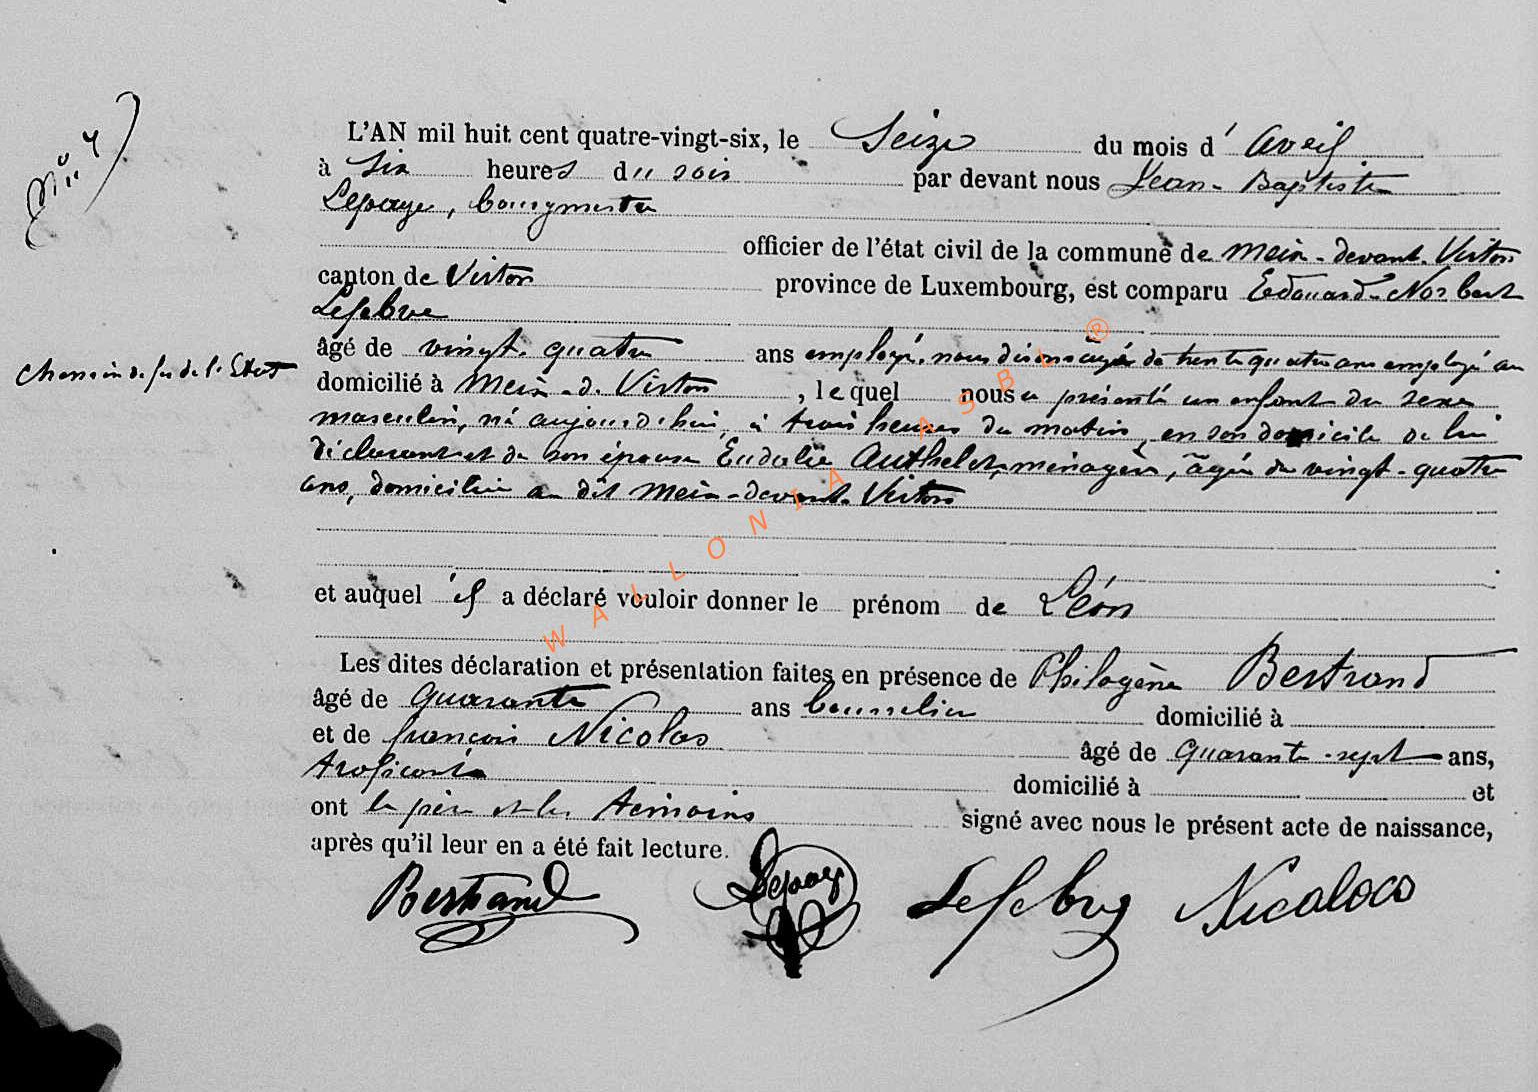 L'AN mil huit cent quatre-vingt-six, le Seize du mois d'avril
à Six heures du soir par devant nous Jean-Baptiste
Lepage, bourgmestre
officier de l'état civil de la commune de Meix-devant-Virton
canton de Virton province de Luxembourg, est comparu Edouard-Norbert
Lefebvre
âgé de vingt-quatre ans employé, nous disons âgé de trente quatre ans employé au
Chemin de fer de l'Etat
domicilié à Meix-d-Virton, lequel nous a présenté un enfant du sexe
masculin, né aujourd'hui, à trois heures du matin, en son domicile de lui
déclarant et de son épouse Eudalie Authelet, ménagère, âgée de vingt-quatre
ans, domiciliée au dit Meix-devant-Virton
et auquel il a déclaré vouloir donner le prénom de Léon
Les dites déclaration et présentation faites en présence de Philogène Bertrand
âgé de quarante ans bourrelier domicilié à
et de françois Nicolas âgé de quarante-sept ans,
domicilié à et
ont le père et les témoins signé avec nous le présent acte de naissance,
après qu'il leur en a été fait lecture.
Bertrand Lepage Lefebvre Nicolas
WALLONIA ASBL ®